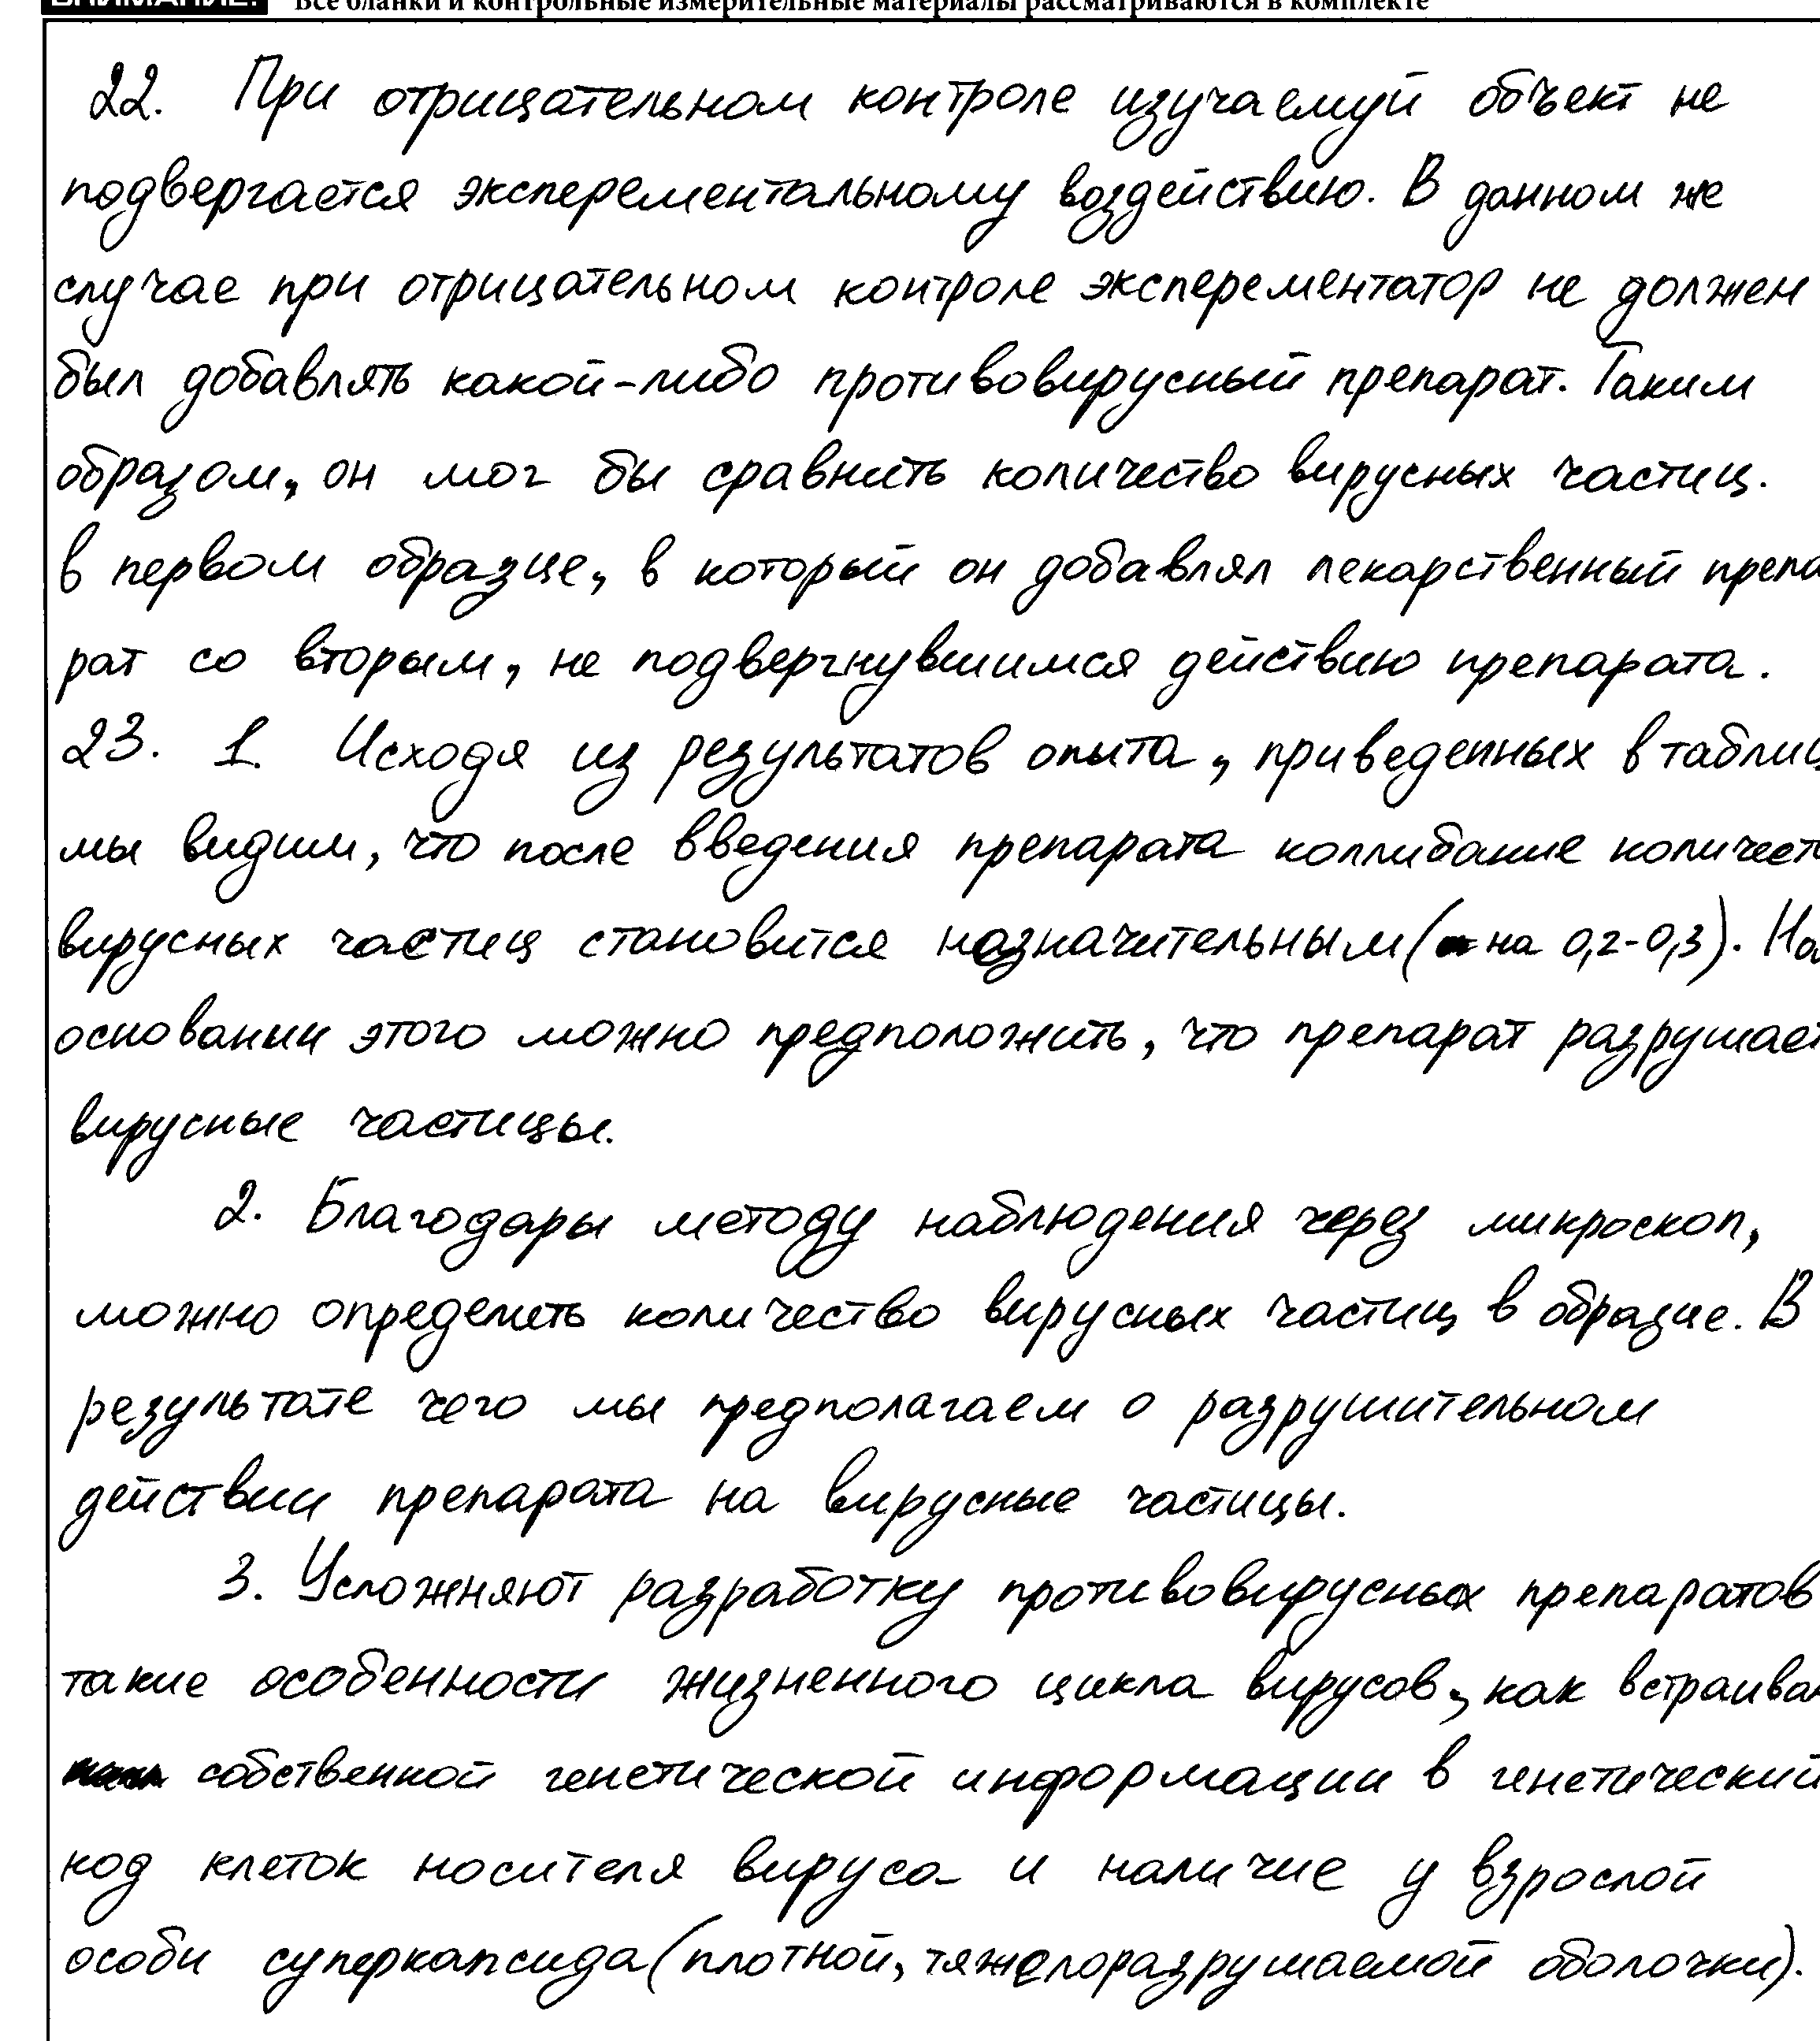 ВНИМАНИЕ! Все бланки и контрольные измерительные материалы рассматриваются в комплекте
22. При отрицательном контроле изучаемуй объект не
подвергается эксперементальному воздействию. В данном же
случае при отрицательном контроле эксперементатор не должен
был добавлять какой-либо противовирусный препарат. Таким
образом, он мог бы сравнить количество вирусных частиц.
в первом образце, в который он добавлял лекарственный препа
рат со вторым, не подвергнувшимся действию препарата.
23. 1. Исходя из результатов опыта, приведенных в таблиц
мы видим, что после введения препарата коллибание количест
вирусных частиц становится незначительным (на 0,2-0,3). На
основании этого можно предположить, что препарат разрушает
вирусные частицы.
2. Благодары методу наблюдения через микроскоп,
можно определить количество вирусных частиц в образце. В
результате чего мы предполагаем о разрушительном
действии препарата на вирусные частицы.
3. Усложняют разработку противовирусных препаратов
такие особенности жизненного цикла вирусов, как встраива
собственной генетической информации в генетический
код клеток носителя вируса и наличие у взрослой
особи суперкапсида (плотной, тяжелоразрушаемой оболочки).